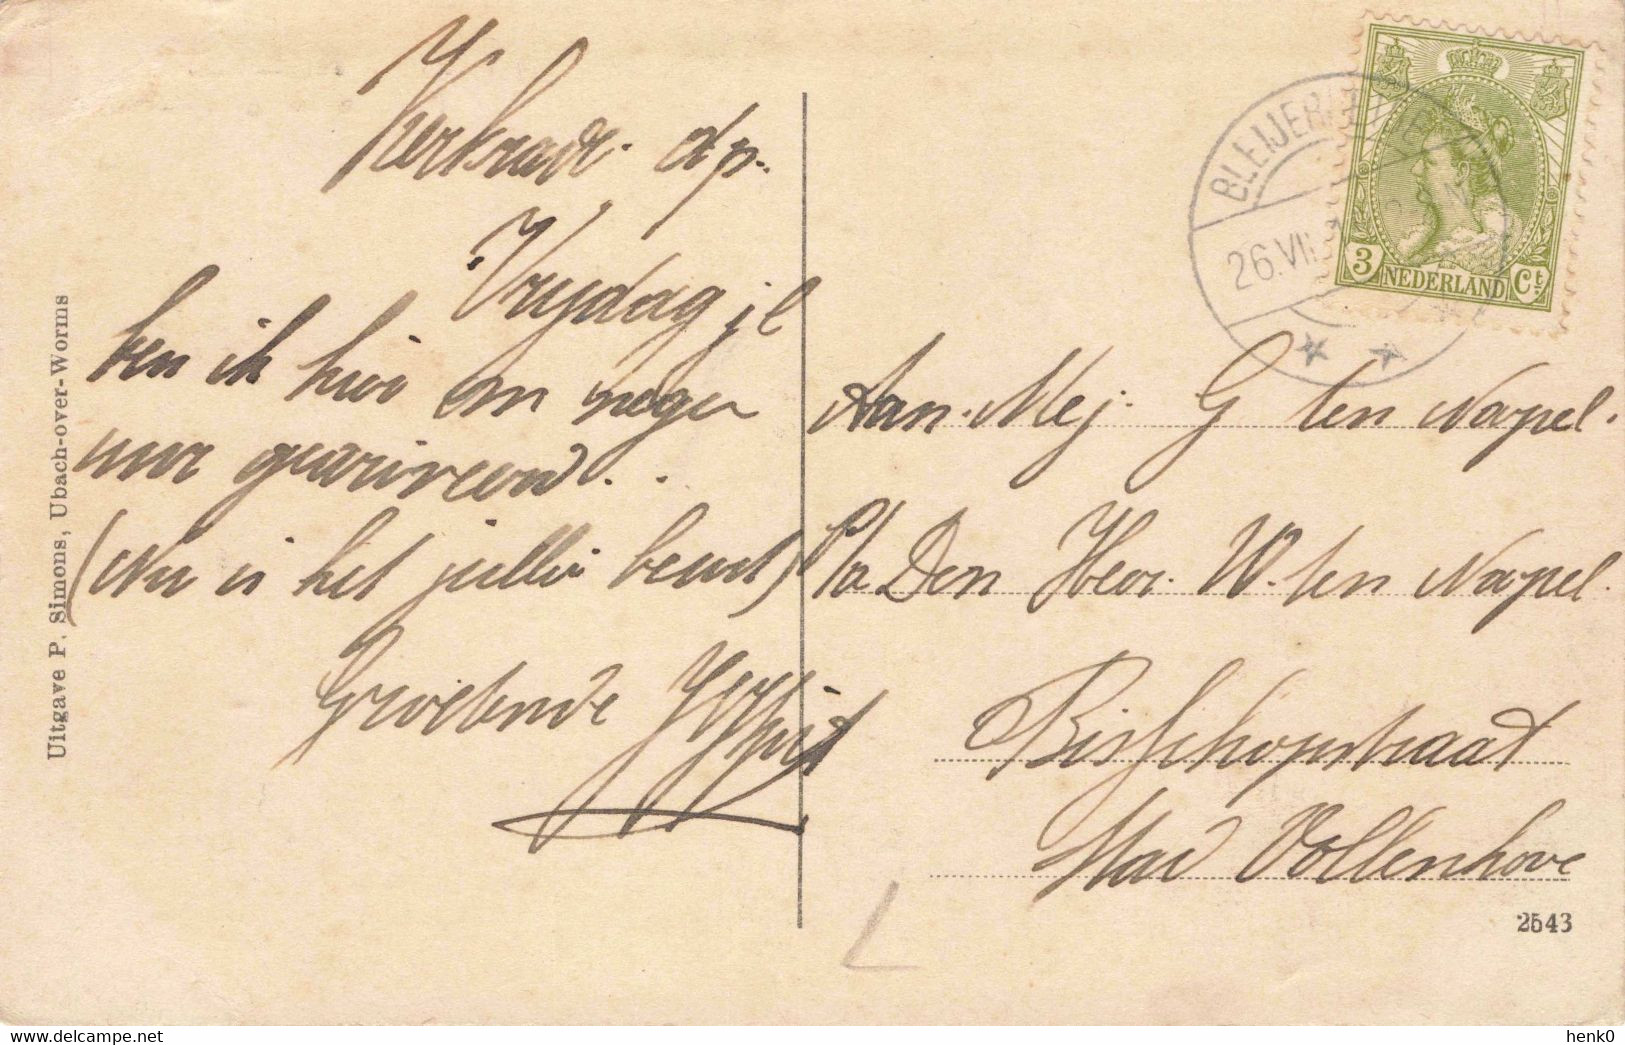 Kerkrade. d/p.
Vrijdag jl
ben ik hier om negen
uur gearriveerd..
(Nu is het jullie beurt)
Groetende
Aan. Mej. G ten Napel.
P/a Den Heer. W. ten Napel.
Bisschopstraat
Stad Vollenhove
BLEIJERHEIDE
26.VII
3 NEDERLAND Ct.
Uitgave P. Simons, Ubach-over-Worms
2543
henk0